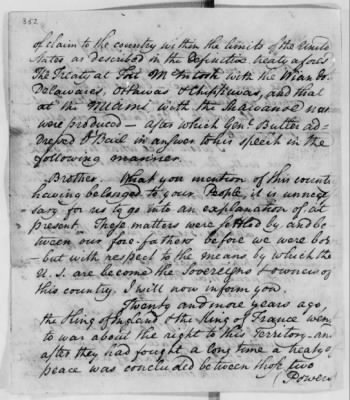 352
of claim to the country within the limits of the United
States as described in the Definitive treaty aforesd
The Treaty at Fort McIntosh with the Wiandots
Delawares, Ottawas & Chippawas, and that
at the Miami with the Shawanoe now
were produced — after which Genl. Butler ad-
dressed O Bail in answer to his speech in the
following manner.
Brother. What you mention of this count
having belonged to your People, it is unneces
sary for us to go into an explanation of at
present. These matters were settled by and be
tween our fore-fathers before we were bor
— but with respect to the means by which the
U. S. are become the Sovereigns & owners of
this country, I will now inform you.
Twenty and more years ago,
the King of England & the King of France went
to war about the right to this Territory — an
after they had fought a long time a treaty o
peace was concluded between those two
(Powers